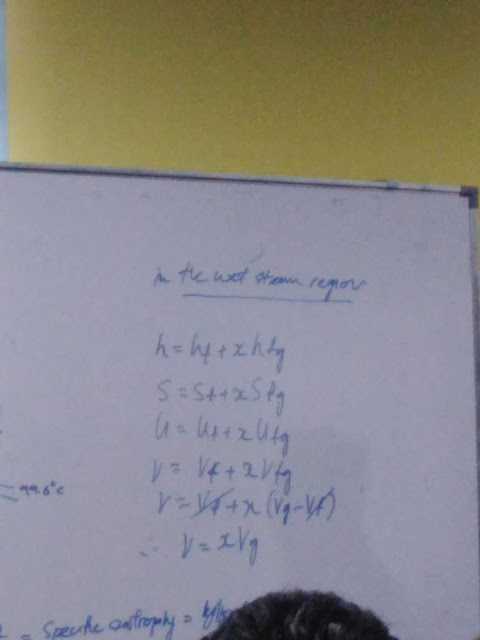 in the wet steam region
h = hf + x hfg
S = Sf + x Sfg
U = Uf + x Ufg
V = Vf + x Vfg
V = Vf + x (Vg - Vf)
∴ V = x Vg
99.6°C
= Specific entrophy =